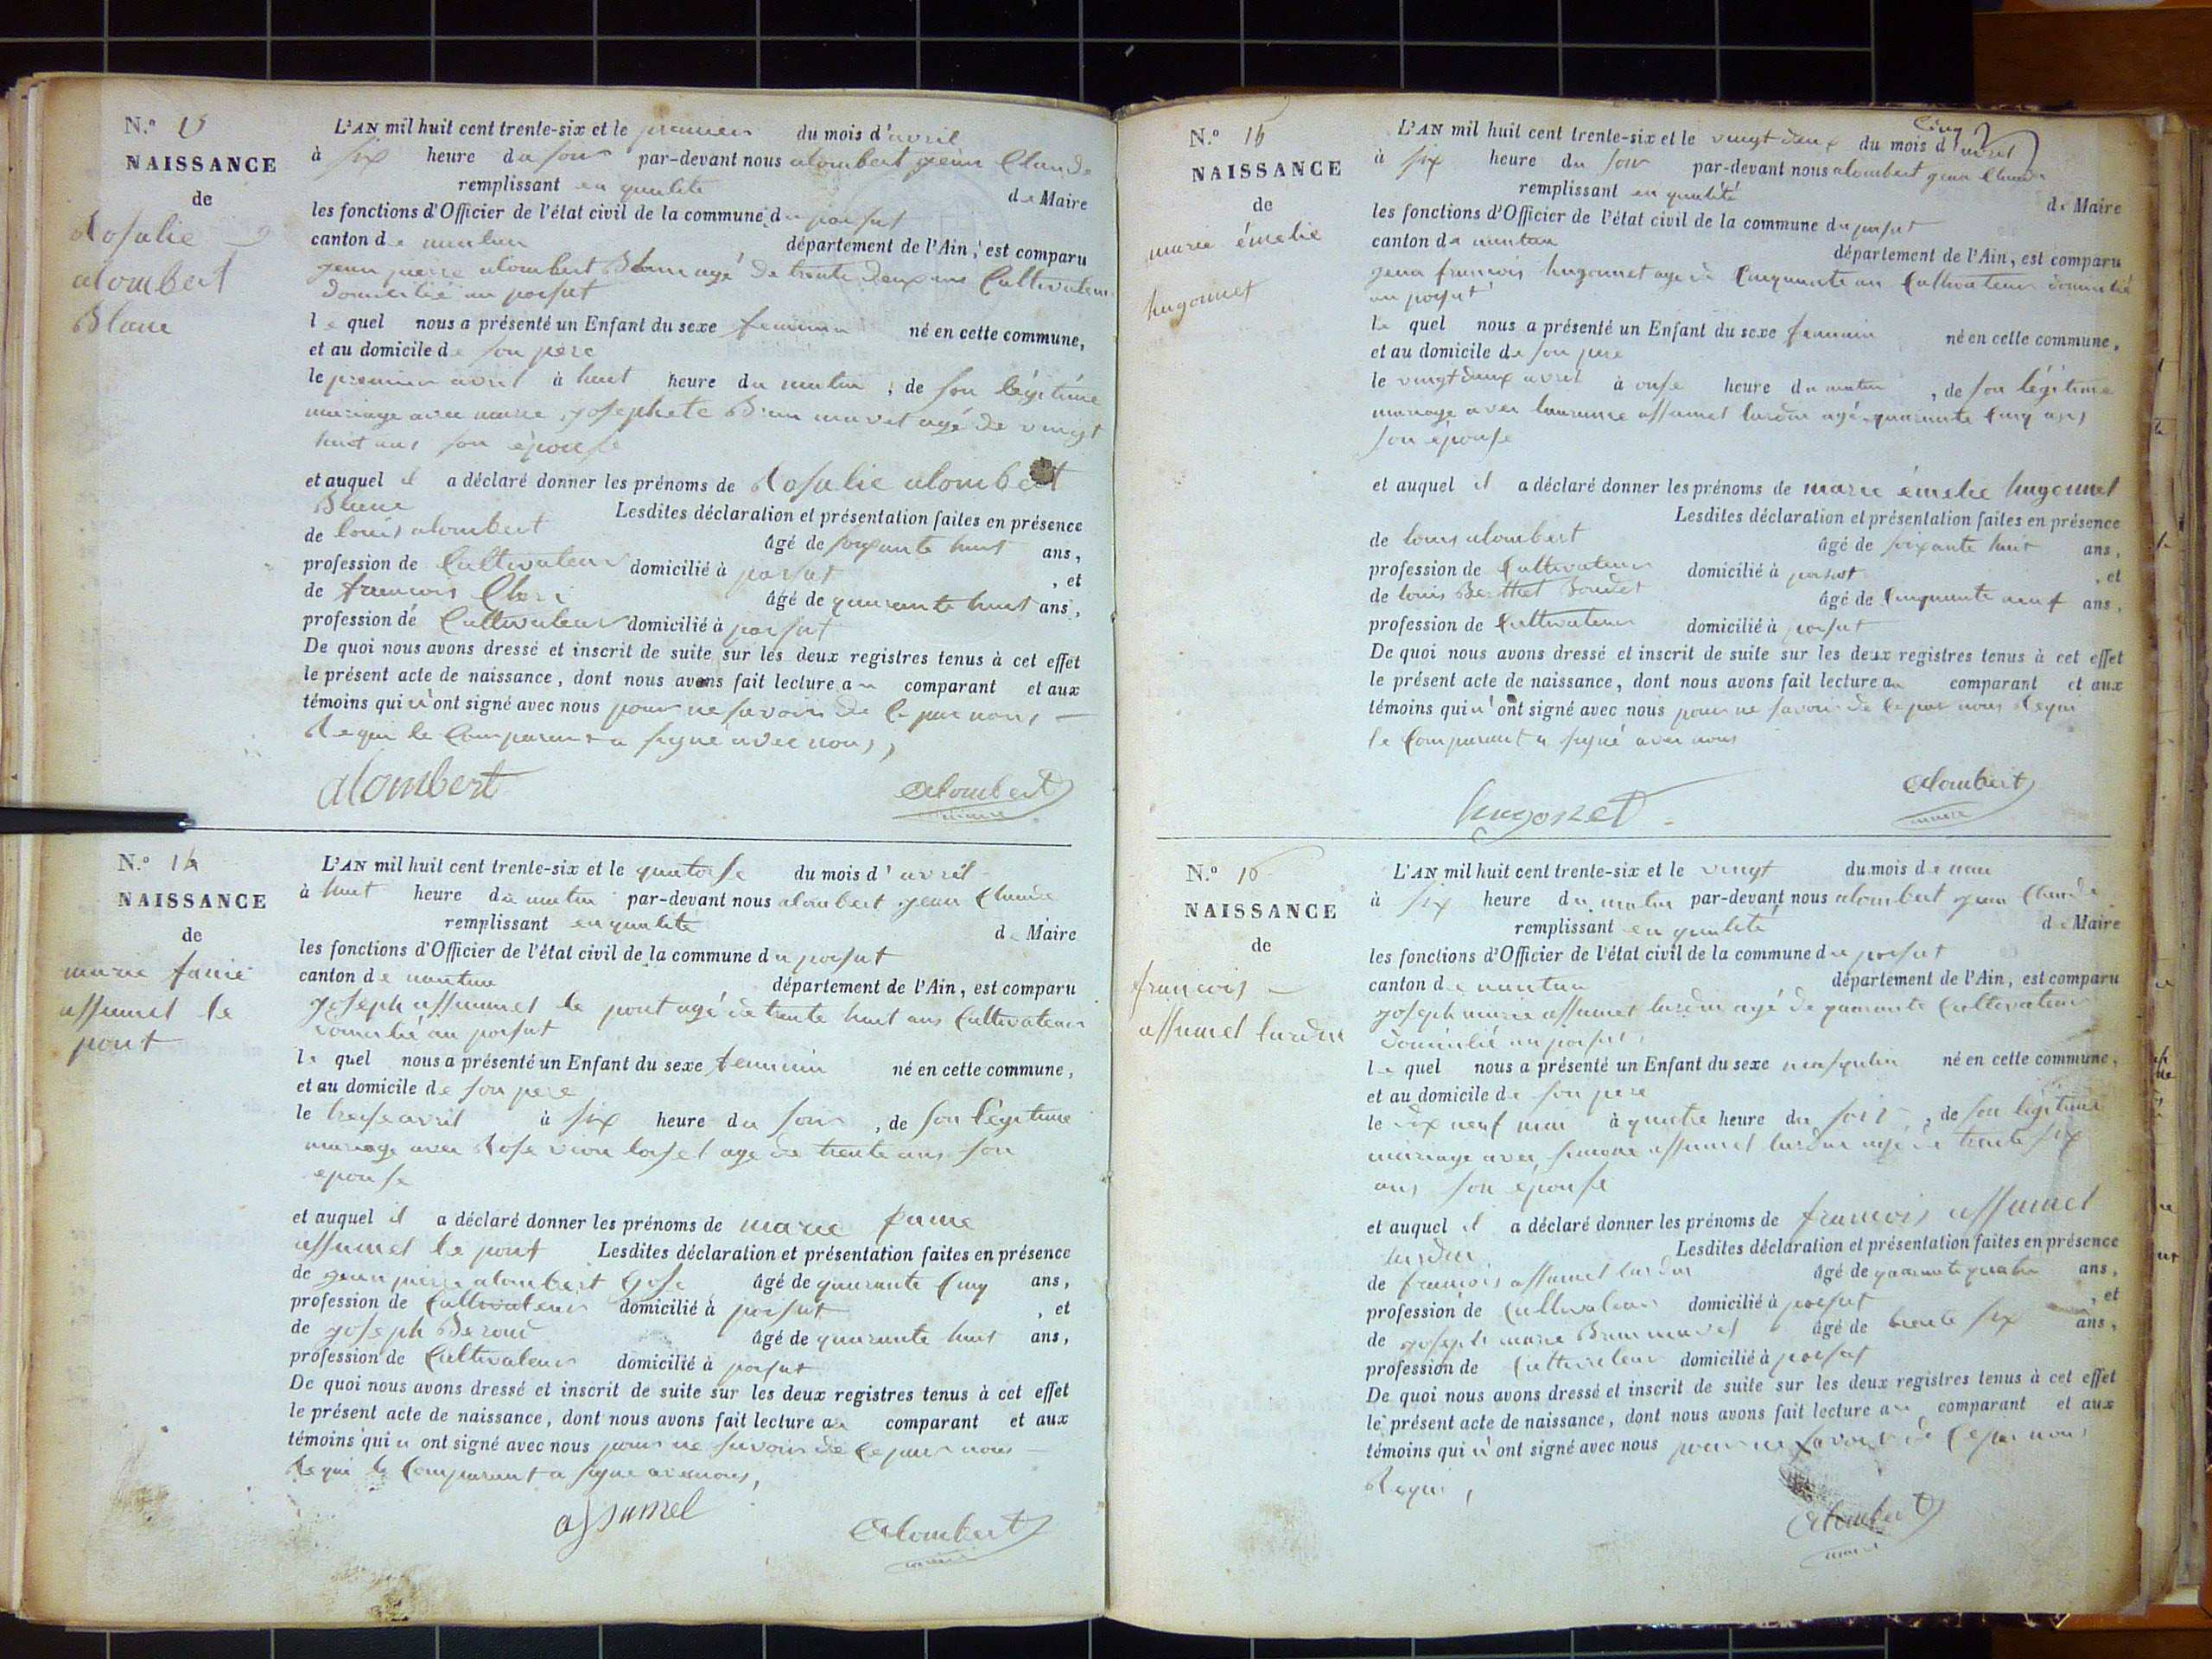 N.° 13
NAISSANCE
de
Rosalie
alombert
Blanc
L'AN mil huit cent trente-six et le premier du mois d'avril
à six heure du soir par-devant nous alombert jean Claude
remplissant en qualité de Maire
les fonctions d'Officier de l'état civil de la commune du poisat
canton de nantua département de l'Ain, est comparu
jean pierre alombert Blanc agé de trente deux ans Cultivateur
domicilié au poisat
le quel nous a présenté un Enfant du sexe feminin né en cette commune,
et au domicile de son père
le premier avril à huit heure du matin, de son légitime
mariage avec marie josephete Brun mavet agé de vingt
huit ans son épouse
et auquel il a déclaré donner les prénoms de Rosalie alombert
Blanc Lesdites déclaration et présentation faites en présence
de louis alombert âgé de soixante huit ans,
profession de Cultivateur domicilié à poisat, et
de francois âgé de quarante huit ans,
profession de Cultivateur domicilié à poisat
De quoi nous avons dressé et inscrit de suite sur les deux registres tenus à cet effet
le présent acte de naissance, dont nous avons fait lecture au comparant et aux
témoins qui n'ont signé avec nous pour ne savoir de ce par nous
Requi le Comparant a signé avec nous,
alombert alombert
maire
N.° 14
NAISSANCE
de
marie fanie
assumel le
pont
L'AN mil huit cent trente-six et le quatorse du mois d'avril
à huit heure du matin par-devant nous alombert jean Claude
remplissant en qualité de Maire
les fonctions d'Officier de l'état civil de la commune du poisat
canton de nantua département de l'Ain, est comparu
joseph assumel le pont agé de trente huit ans Cultivateur
domicilié au poisat
le quel nous a présenté un Enfant du sexe feminin né en cette commune,
et au domicile de son pere
le treise avril à six heure du soir, de son légitime
mariage avec Rose vion loisel age de trente ans son
epouse
et auquel il a déclaré donner les prénoms de marie fanie
assumel le pont Lesdites déclaration et présentation faites en présence
de jean pierre alombert âgé de quarante Cinq ans,
profession de Cultivateur domicilié à poisat, et
de joseph Beroud âgé de quarante huit ans,
profession de Cultivateur domicilié à poisat
De quoi nous avons dressé et inscrit de suite sur les deux registres tenus à cet effet
le présent acte de naissance, dont nous avons fait lecture au comparant et aux
témoins qui n ont signé avec nous pour ne savoir de ce par nous
Requi le Comparant a signe avec nous,
assumel alombert
maire
N.° 15
NAISSANCE
de
marie émelie
hugonnet
L'AN mil huit cent trente-six et le vingt deux du mois d'avril
à six heure du soir par-devant nous alombert jean Claude
remplissant en qualité de Maire
les fonctions d'Officier de l'état civil de la commune du poisat
canton de nantua département de l'Ain, est comparu
jean francois hugonnet age de Cinquante an Cultivateur domicilié
au poisat
le quel nous a présenté un Enfant du sexe feminin né en cette commune,
et au domicile de son pere
le vingt deux avril à onse heure du matin, de son légitime
mariage avec assumel lardon agé quarante Cinq ans
son épouse
et auquel il a déclaré donner les prénoms de marie émelie hugonnet
Lesdites déclaration et présentation faites en présence
de louis alombert âgé de soixante huit ans,
profession de Cultivateur domicilié à poisat, et
de louis Berthet Bondet âgé de Cinquante neuf ans,
profession de Cultivateur domicilié à poisat
De quoi nous avons dressé et inscrit de suite sur les deux registres tenus à cet effet
le présent acte de naissance, dont nous avons fait lecture au comparant et aux
témoins qui n'ont signé avec nous pour ne savoir de ce par nous Requi
le Comparant a signé avec nous
hugonet alombert
maire
N.° 16
NAISSANCE
de
francois
assumel lardon
L'AN mil huit cent trente-six et le vingt du mois de mai
à six heure du matin par-devant nous alombert jean Claude
remplissant en qualité de Maire
les fonctions d'Officier de l'état civil de la commune du poisat
canton de nantua département de l'Ain, est comparu
joseph marie assumel lardon agé de quarante Cultivateur
domicilié au poisat,
le quel nous a présenté un Enfant du sexe masqulin né en cette commune,
et au domicile de son pere
le dix neuf mai à quatre heure du soir, de son légitime
mariage avec simone assumel lardon agé de trente six
ans son épouse
et auquel il a déclaré donner les prénoms de francois assumel
lardon Lesdites déclaration et présentation faites en présence
de francois assumel lardon âgé de quarante quatre ans,
profession de Cultivateur domicilié à poisat, et
de joseph marie Brun mavet âgé de trente six ans,
profession de Cultivateur domicilié à poisat
De quoi nous avons dressé et inscrit de suite sur les deux registres tenus à cet effet
le présent acte de naissance, dont nous avons fait lecture au comparant et aux
témoins qui n'ont signé avec nous pour ne savoir de ce par nous
Requi,
alombert
maire